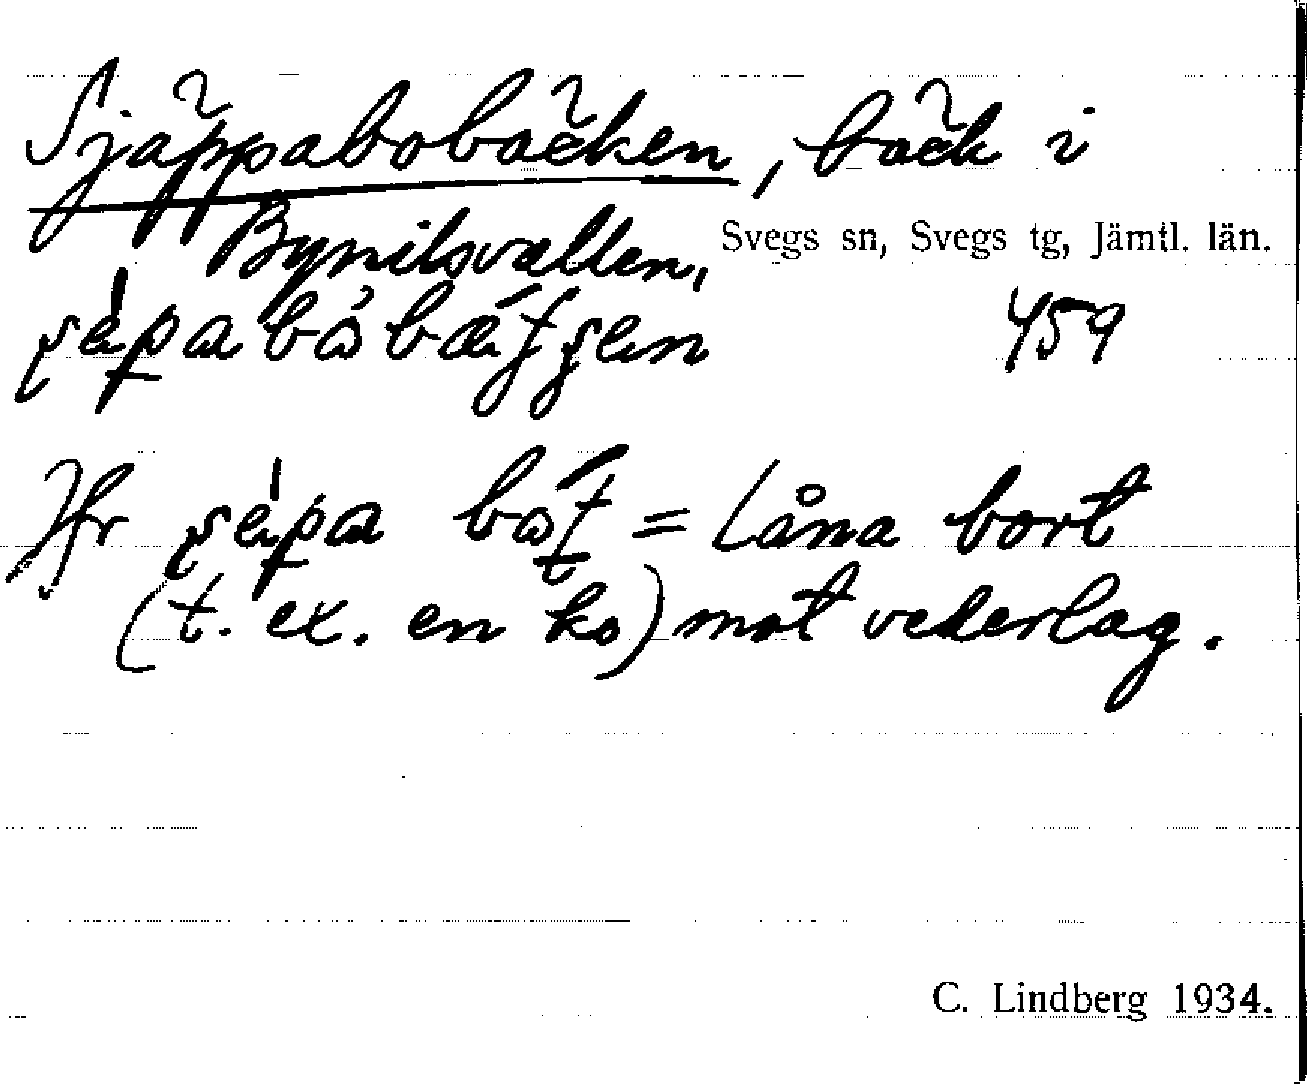 Sjäppabobäcken, bäck i
Bynilsvallen, Svegs sn, Svegs tg, Jämtl. län.
459
Jfr = låna bort
(t. ex. en ko) mot vederlag.
C. Lindberg 1934.